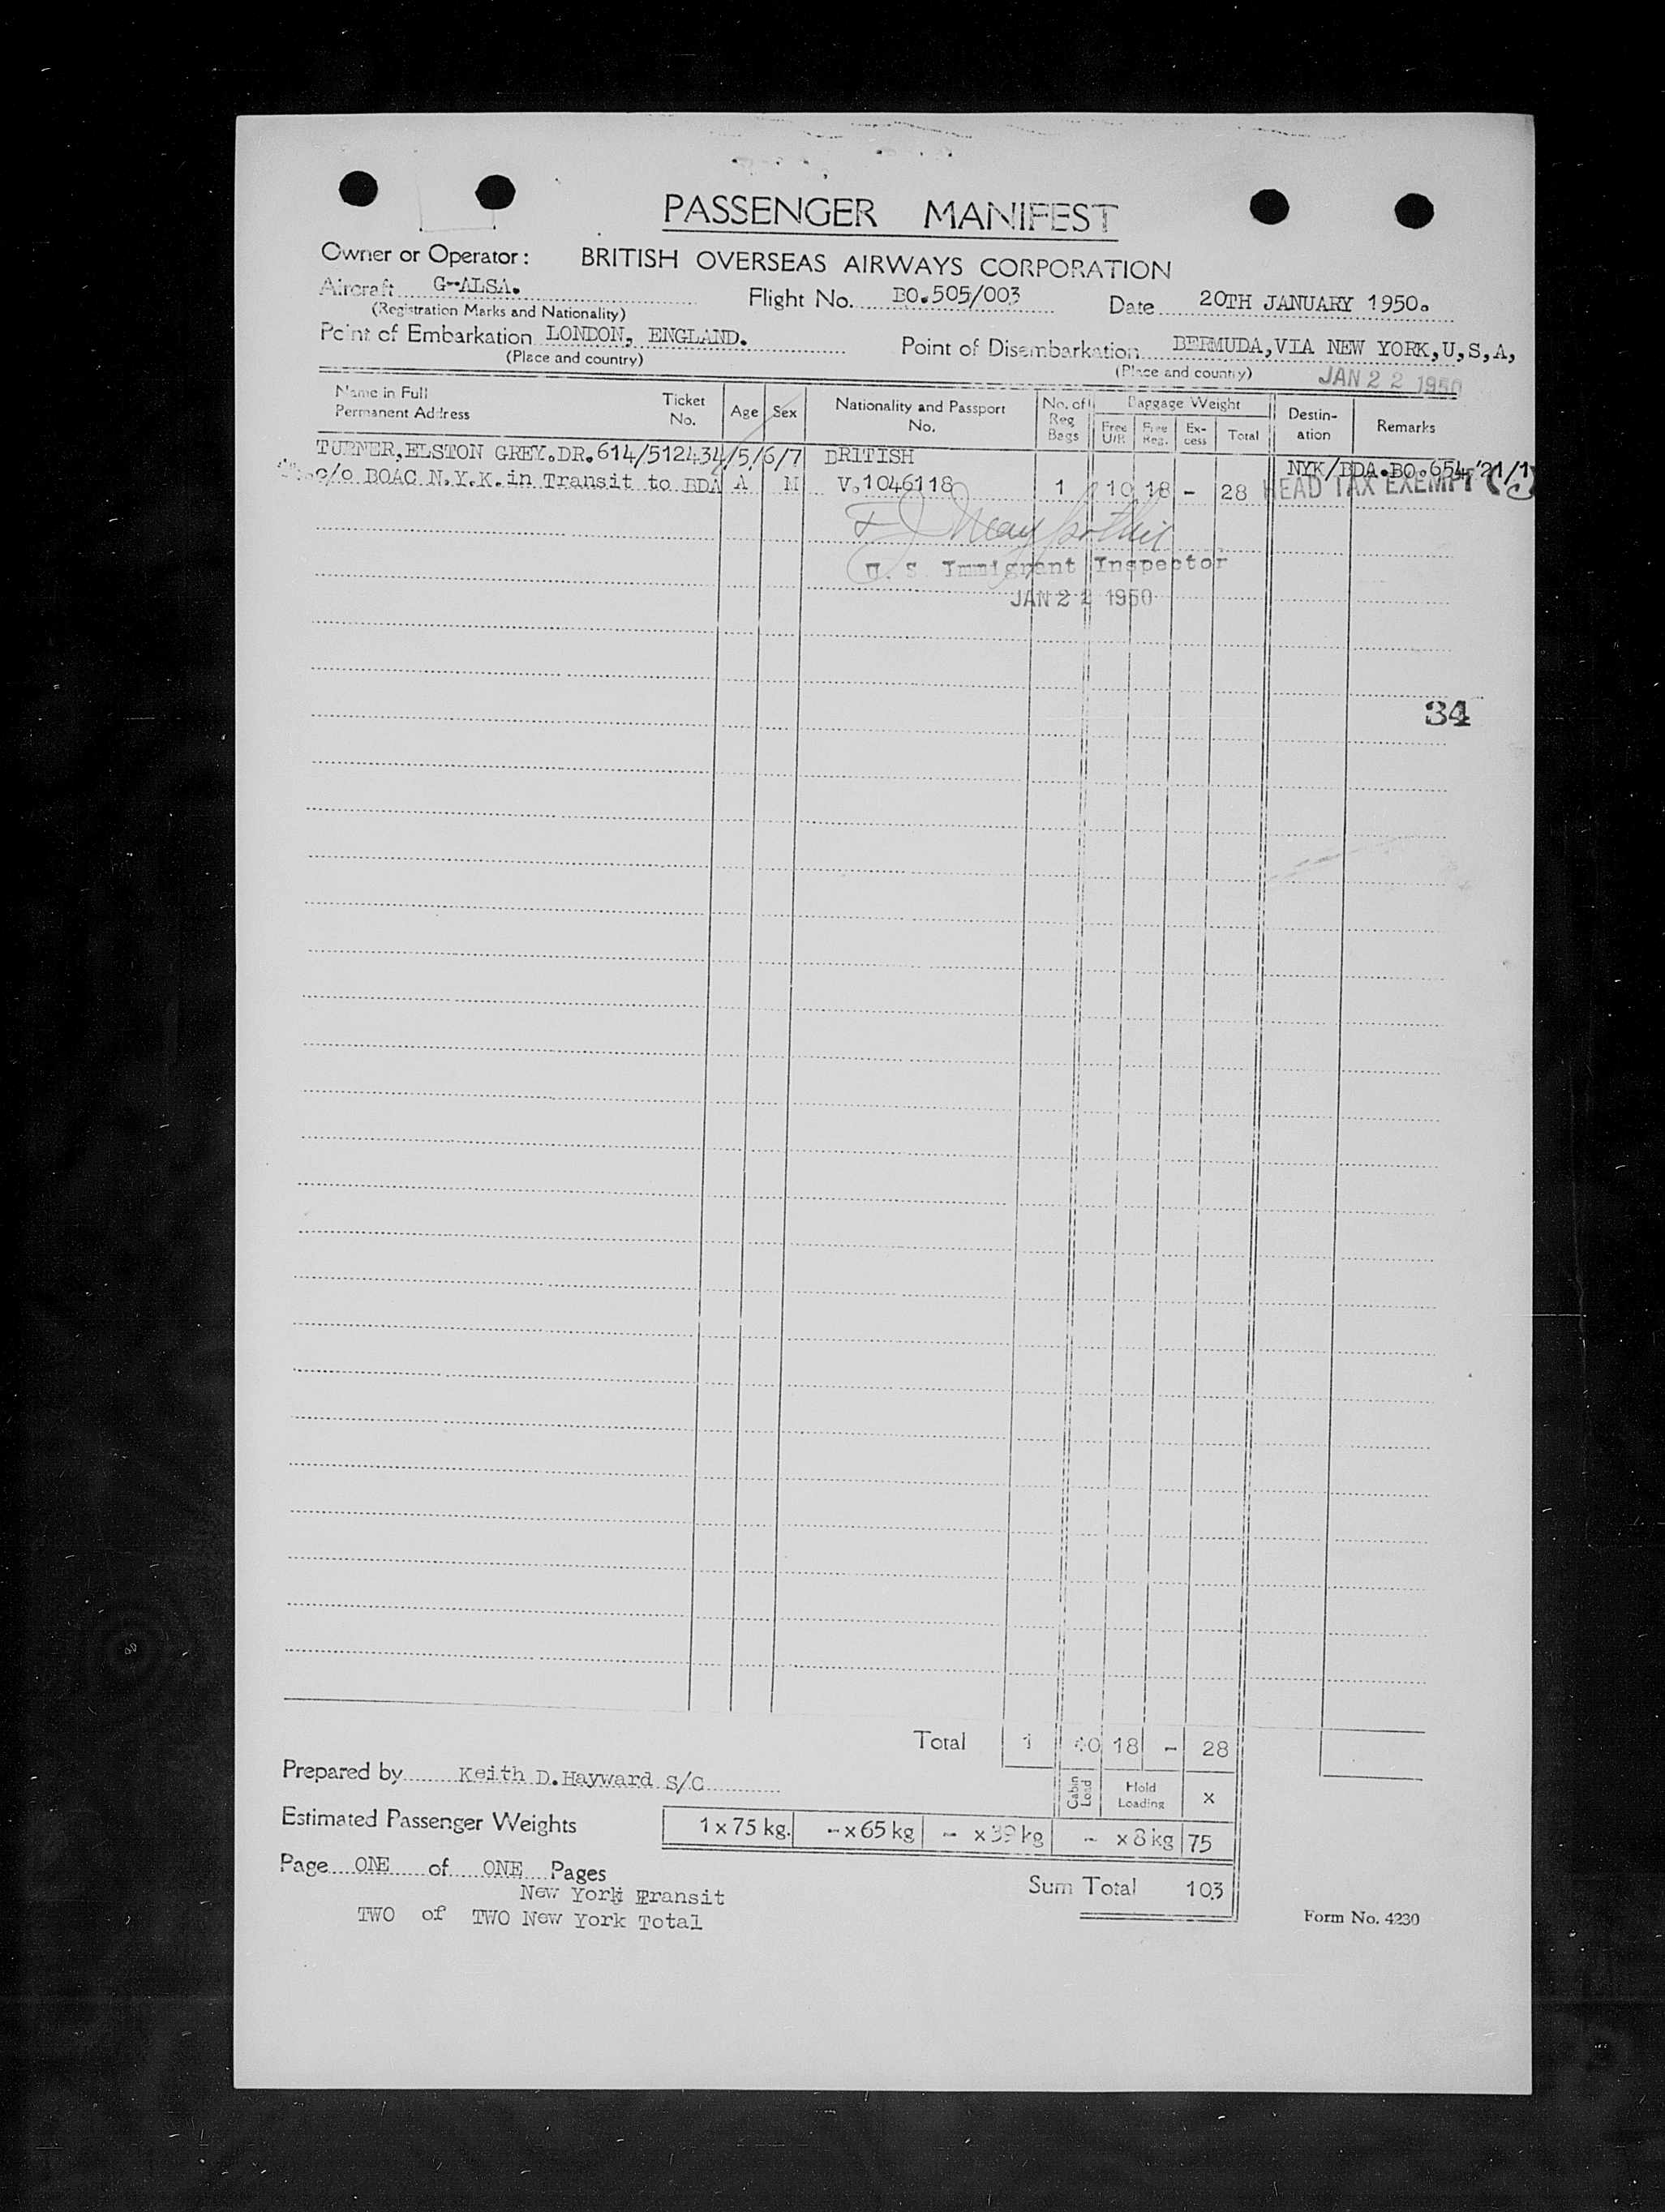 PASSENGER MANIFEST
Owner or Operator: BRITISH OVERSEAS AIRWAYS CORPORATION
Aircraft G-ALSA. Flight No. BO.505/003 Date 20TH JANUARY 1950.
(Registration Marks and Nationality)
Point of Embarkation LONDON, ENGLAND. Point of Disembarkation BERMUDA,VIA NEW YORK,U,S,A,
(Place and country) (Place and country) JAN 22 1950
Name in Full Permanent Address Ticket No. Age Sex Nationality and Passport No. No. of Reg Bags Baggage Weight Free U/R Free Reg. Ex-cess Total Destin-ation Remarks
TURNER,ELSTON GREY.DR.614/512434/5/6/7 BRITISH NYK/BDA.BO.654 21/1
c/o BOAC N.Y.K.in Transit to BDA A M V.1046118 1 10 18 - 28 HEAD TAX EXEMPT
U. S. Immigrant Inspector
JAN 22 1950
34
Total 1 10 18 - 28
Prepared by Keith D.Hayward S/C Cabin Load Hold Loading x
Estimated Passenger Weights 1 x 75 kg. - x 65 kg - x 39 kg - x 8 kg 75
Page ONE of ONE Pages
Sum Total 103
New York Transit
TWO of TWO New York Total
Form No. 4230